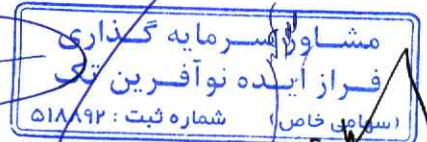 مشاور سرمایه گذاری
فراز آینده نوآفرین تک
(سهامی خاص) شماره ثبت : ۵۱۸۸۹۲